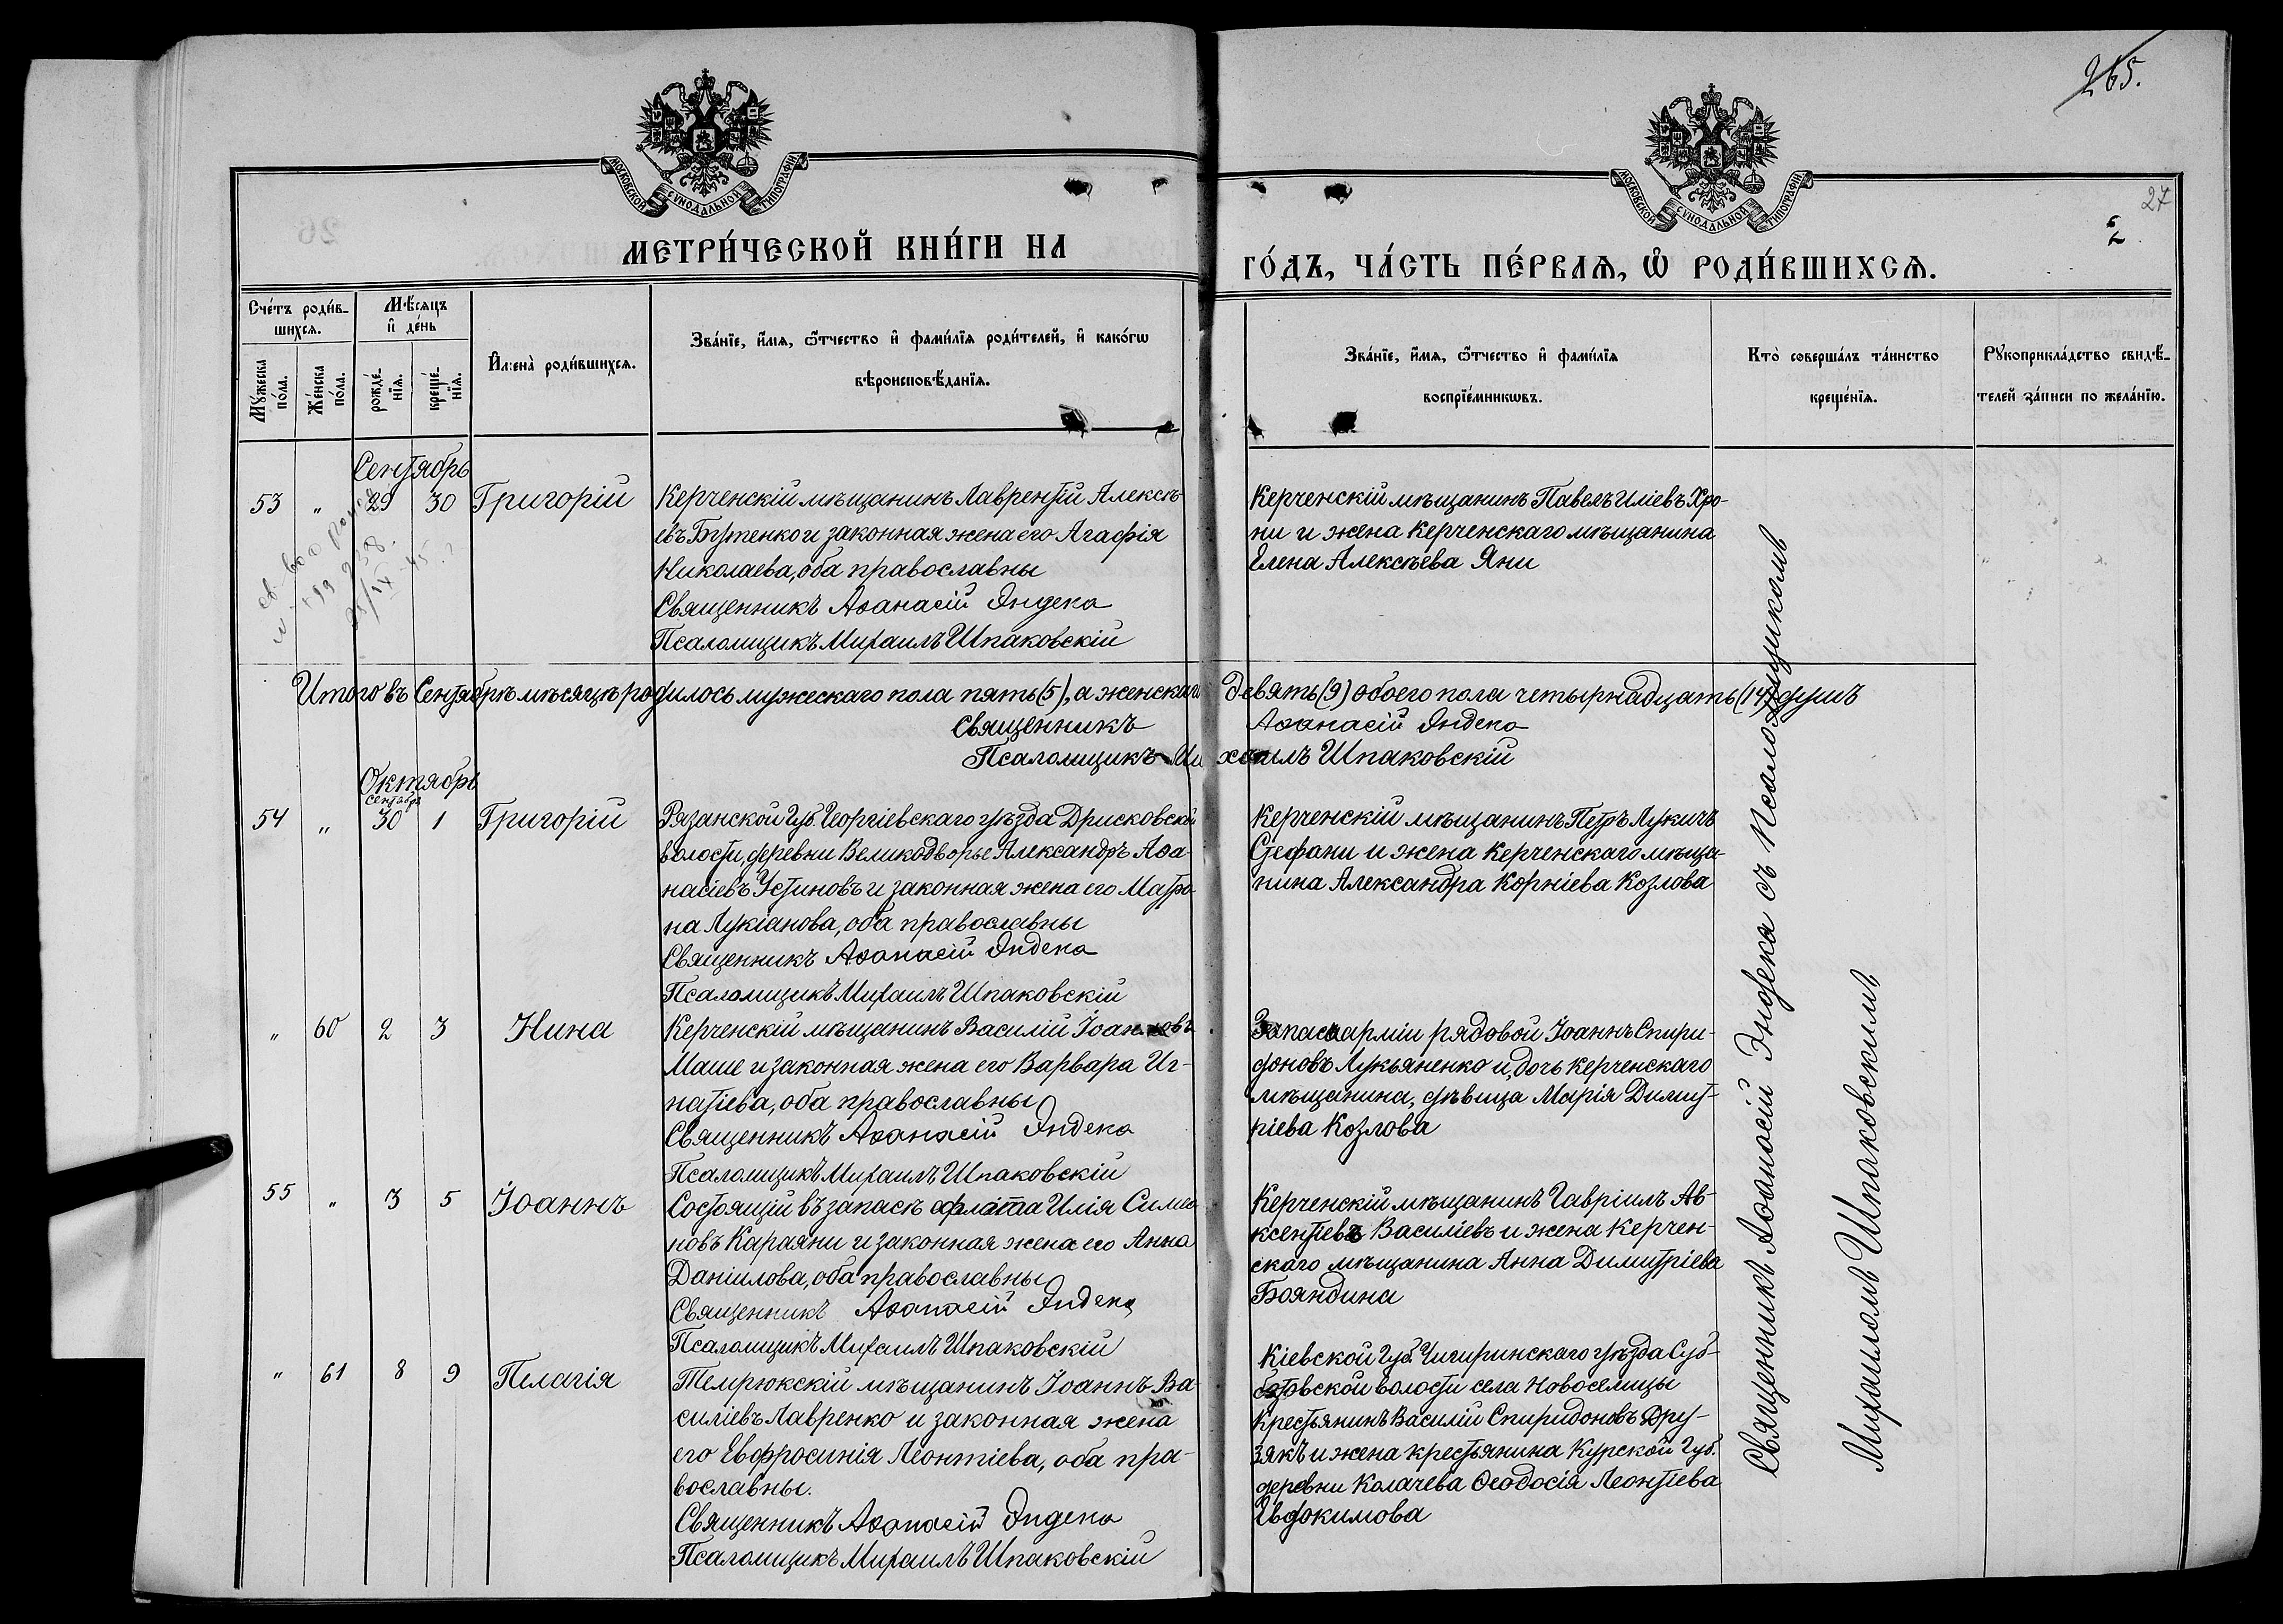 265.
27
МОСКОВСКОЙ СѴНОДАЛЬНОЙ ТИПОГРАФІИ
МОСКОВСКОЙ СѴНОДАЛЬНОЙ ТИПОГРАФІИ
МЕТРИ́ЧЕСКОЙ КНИ́ГИ НА ГО́ДЪ, ЧА́СТЬ ПЕ́РВАѦ, Ѡ РОДИ́ВШИХСѦ.
Сче́тъ роди́в-
шихсѧ.
Мꙋ́жеска по́ла.
Же́нска по́ла.
Мѣ́сѧцъ
и҆ де́нь
рожде́-
нїѧ.
креще́-
нїѧ.
И҆мена̀ роди́вшихсѧ.
Зва́нїе, и҆́мѧ, ѻ҆́тчество и҆ фами́лїѧ роди́телей, и҆ како́гѡ
вѣроисповѣ́данїѧ.
Зва́нїе, и҆́мѧ, ѻ҆́тчество и҆ фами́лїѧ
воспрїе́мникѡвъ.
Кто̀ соверша́лъ та́инство
креще́нїѧ.
Рꙋкоприкла́дство свидѣ́-
телей за́писи по жела́нїю.
Сентябрь
53 " 29 30 Григорій
Керченскій мѣщанинъ Лаврентій Алексѣ-
евъ Бутенко и законная жена его Агафія
Николаева, оба православны
Священникъ Аѳанасій Эндека
Псаломщикъ Михаилъ Шпаковскій
Керченскій мѣщанинъ Павелъ Иліевъ Хро-
ни и жена Керченскаго мѣщанина
Елена Алексѣева Яни
Итого въ Сентябрѣ мѣсяцѣ родилось мужескаго пола пять (5), а женскаго девять (9) обоего пола четырнадцать (14) душъ
Священникъ Аѳанасій Эндека
Псаломщикъ Михаилъ Шпаковскій
Октябрь
сентабря
54 " 30 1 Григорій
Рязанской Губ. Георгіевскаго уѣзда Дрисковской
волости, деревни Великодворье Александръ Аѳа-
насіевъ Устиновъ и законная жена его Матро
на Лукіанова, оба православны
Священникъ Аѳанасій Эндека
Псаломщикъ Михаилъ Шпаковскій
Керченскій мѣщанинъ Петръ Лукичъ
Стефани и жена Керченскаго мѣща-
нина Александра Корніева Козлова
" 60 2 3 Нина
Керченскій мѣщанинъ Василій Іоанновъ
Маше и законная жена его Варвара Иг-
натіева, оба православны
Священникъ Аѳанасій Эндека
Псаломщикъ Михаилъ Шпаковскій
Запаса арміи рядовой Іоаннъ Спири-
доновъ Лукьяненко и дочь Керченскаго
мѣщанина, дѣвица Марія Димит-
ріева Козлова
55 " 3 5 Іоаннъ
Состоящій въ запасѣ флота Илія Симео
новъ Караяни и законная жена его Анна
Даніилова, оба православны
Священникъ Аѳанасій Эндека
Псаломщикъ Михаилъ Шпаковскій
Керченскій мѣщанинъ Гавріилъ Ав-
ксентіевъ Василіевъ и жена Керчен-
скаго мѣщанина Анна Димитріева
Бояндина
" 61 8 9 Пелагія
Темрюкскій мѣщанинъ Іоаннъ Ва-
силіевъ Лавренко и законная жена
его Евфросинія Леонтіева, оба пра-
вославны.
Священникъ Аѳанасій Эндека
Псаломщикъ Михаилъ Шпаковскій
Кіевской Губ. Чигиринскаго уѣзда Суб-
батовской волости села Новоселицы
Крестьянинъ Василій Спиридоновъ Дру-
зякъ и жена крестьянина Курской Губ.
деревни Колачева Ѳеодосія Леонтіева
Евдокимова
Священникъ Аѳанасій Эндека съ Псаломщикомъ
Михаиломъ Шпаковскимъ